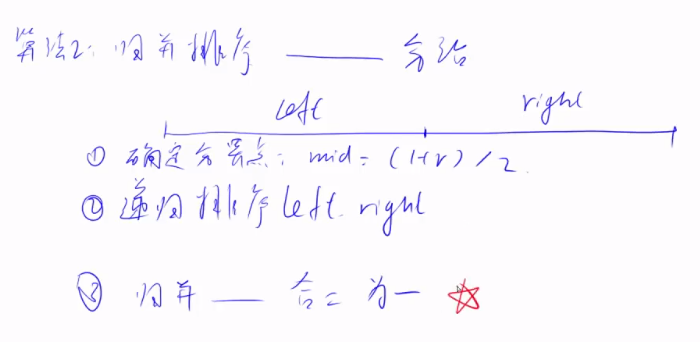 算法2: 归并排序 —— 分治
left right
① 确定分界点: mid = (l+r) / 2
② 递归排序 left, right
③ 归并 —— 合二为一 ☆